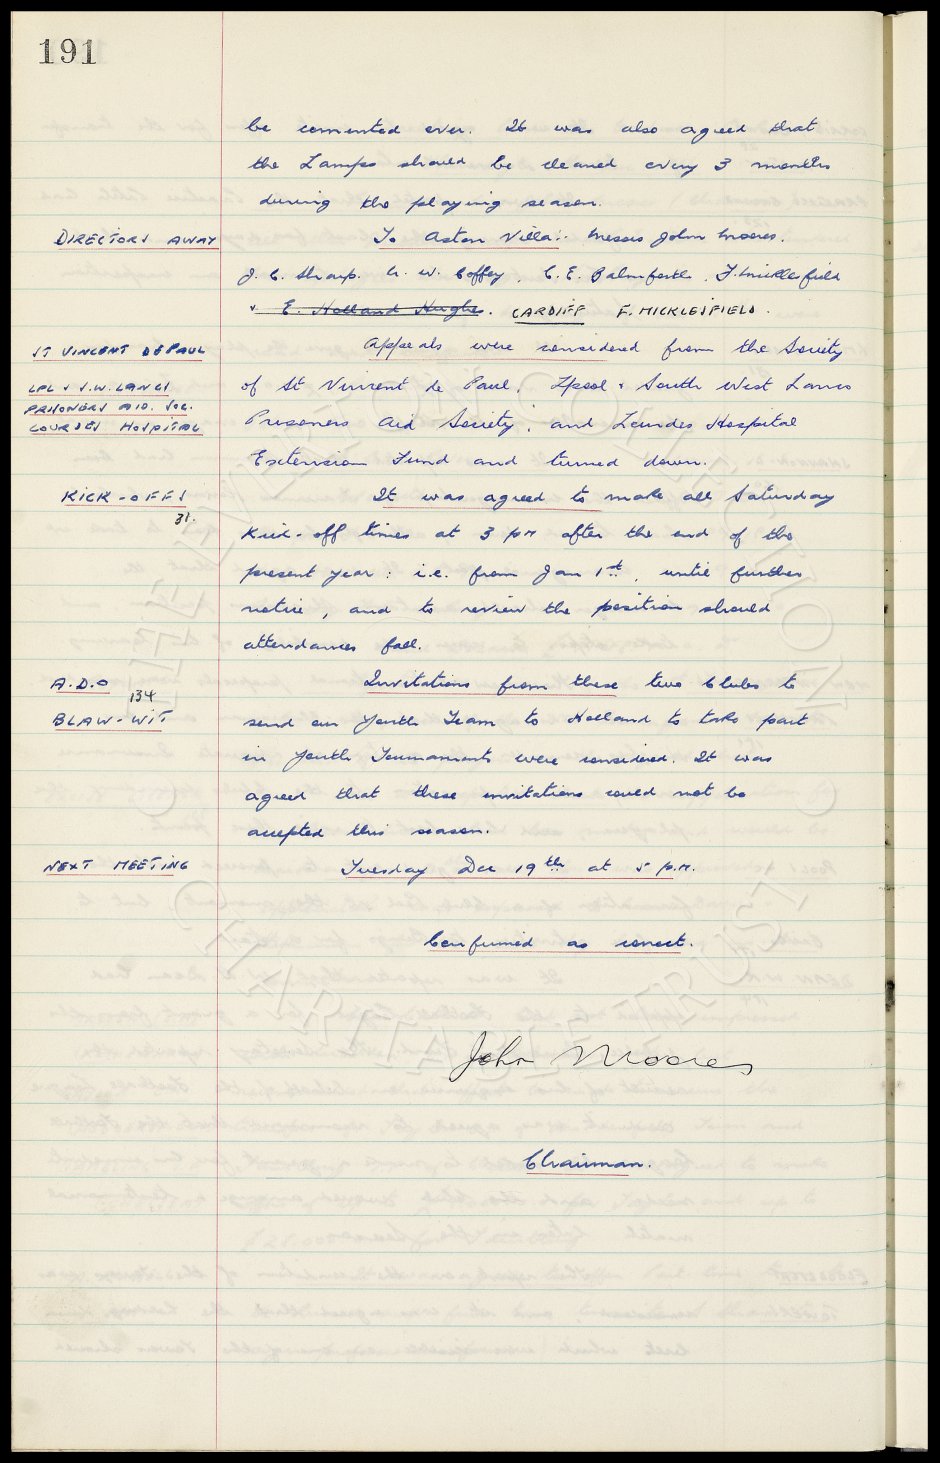 191
be cemented over. It was also agreed that
the Lamps should be cleaned every 3 months
during the playing season.
DIRECTORS AWAY To Aston Villa:- Messrs John Moores.
J. C. Sharp. A. W. Coffey, C. E. Balmforth, F. Micklesfield
& E. Holland Hughes. CARDIFF F. MICKLESFIELD.
ST VINCENT DE PAUL Appeals were considered from the Society
LPL & S.W. LANCS of St Vincent de Paul, Lpool & South West Lancs
PRISONERS AID. SOC.
LOURDES HOSPITAL Prisoners Aid Society, and Lourdes Hospital
Extension Fund and turned down.
KICK-OFFS It was agreed to make all Saturday
31.
Kick-off times at 3 pm after the end of the
present year: i.e. from Jan 1st, until further
notice, and to review the position should
attendances fall.
A.D.O Invitations from these two Clubs to
134
BLAW-WIT send our Youth Team to Holland to take part
in Youth Tournaments were considered. It was
agreed that these invitations could not be
accepted this season.
NEXT MEETING Tuesday Dec 19th at 5 p.m.
Confirmed as correct.
John Moores
Chairman.
EVERTON COLLECTION
CHARITABLE TRUST